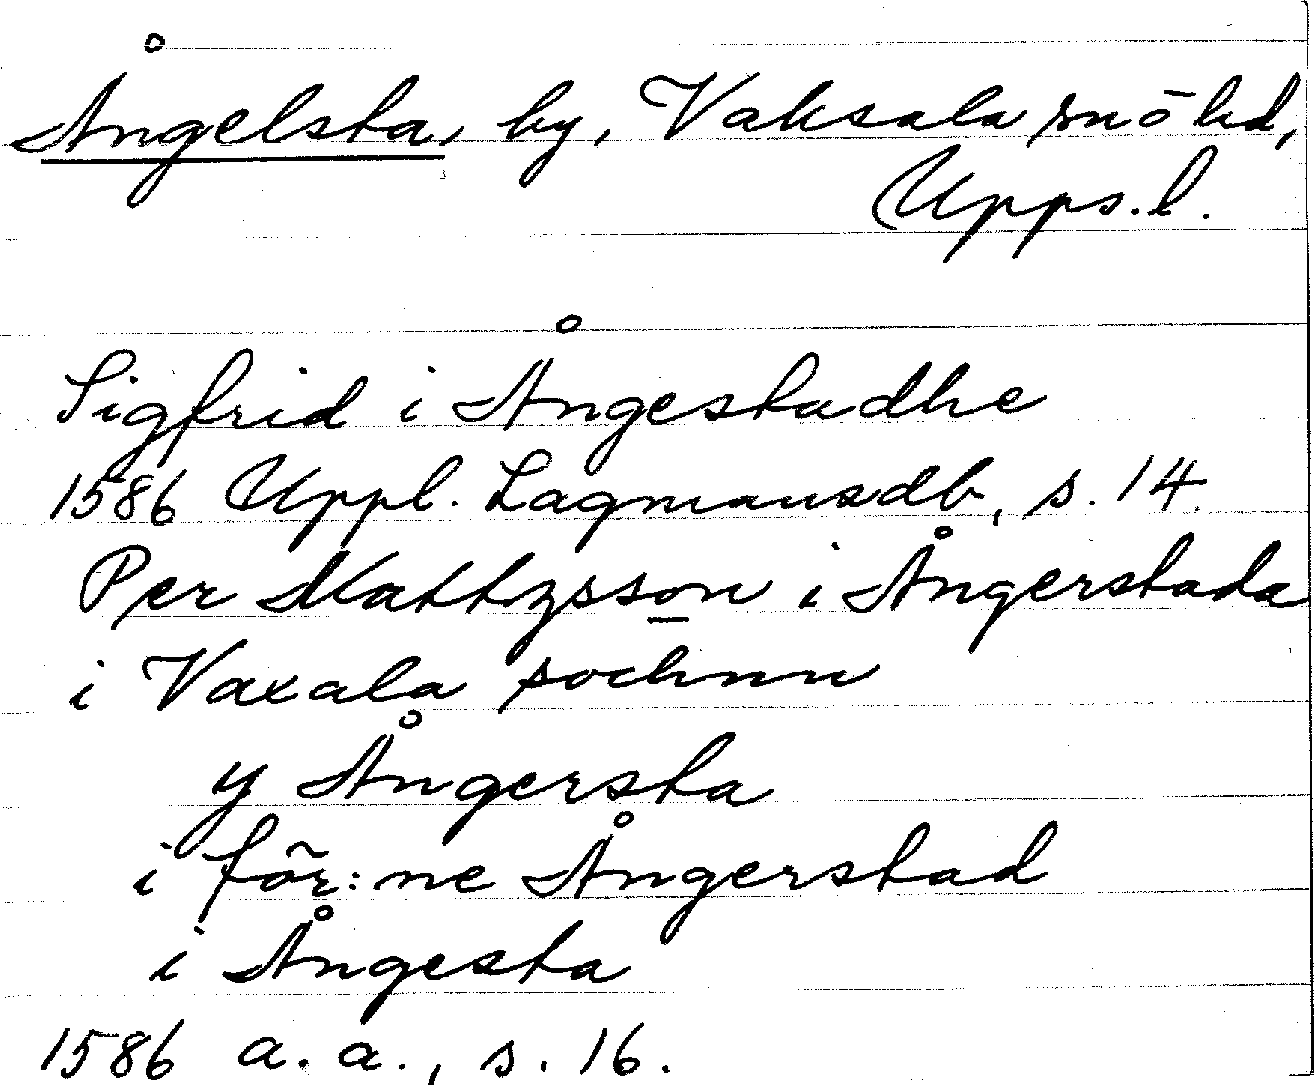 Ångelsta, by, Vaksala snō hd,
Upps. l.
Sigfrid i Ångestadhe
1586 Uppl. Lagmansdb, s. 14.
Per Mattzsson i Ångerstada
i Vaxala sochnn
y Ångersta
i för:ne Ångerstad
i Ångesta
1586 a. a., s. 16.